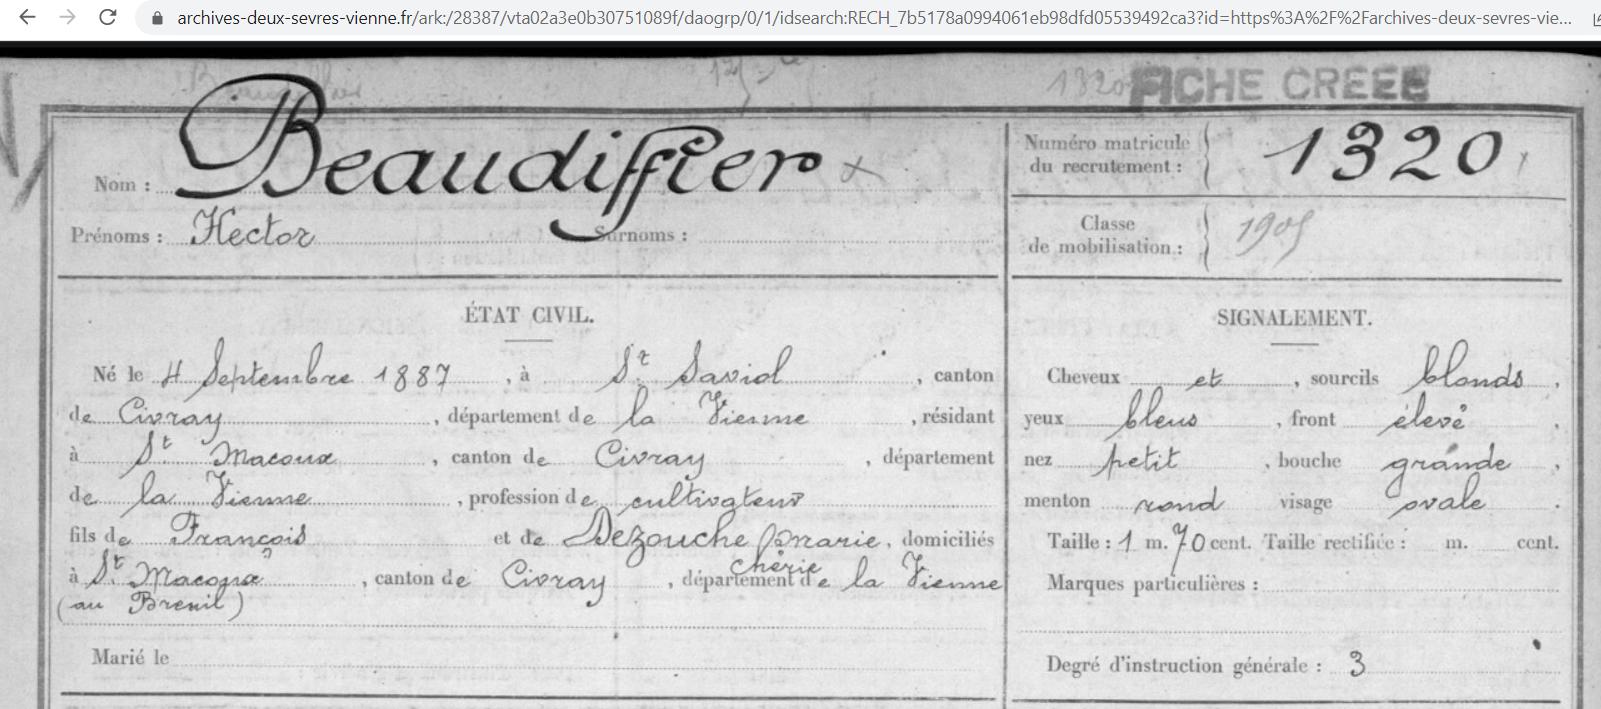 archives-deux-sevres-vienne.fr/ark:/28387/vta02a3e0b30751089f/daogrp/0/1/idsearch:RECH_7b5178a0994061eb98dfd05539492ca3?id=https%3A%2F%2Farchives-deux-sevres-vie...
1320
FICHE CRÉÉE
Nom : Beaudiffier x
Prénoms : Hector Surnoms :
Numéro matricule du recrutement : 1320
Classe de mobilisation : 1905
ÉTAT CIVIL.
Né le 4 Septembre 1887, à St Saviol, canton
de Civray, département de la Vienne, résidant
à St Macoux, canton de Civray, département
de la Vienne, profession de cultivateur
fils de François et de Dezouche Marie, domiciliés
chérie
à St Macoux, canton de Civray, département de la Vienne
(au Breuil)
Marié le
SIGNALEMENT.
Cheveux et, sourcils blonds,
yeux bleus, front élevé,
nez petit, bouche grande,
menton rond visage ovale.
Taille : 1 m. 70 cent. Taille rectifiée : m. cent.
Marques particulières :
Degré d'instruction générale : 3